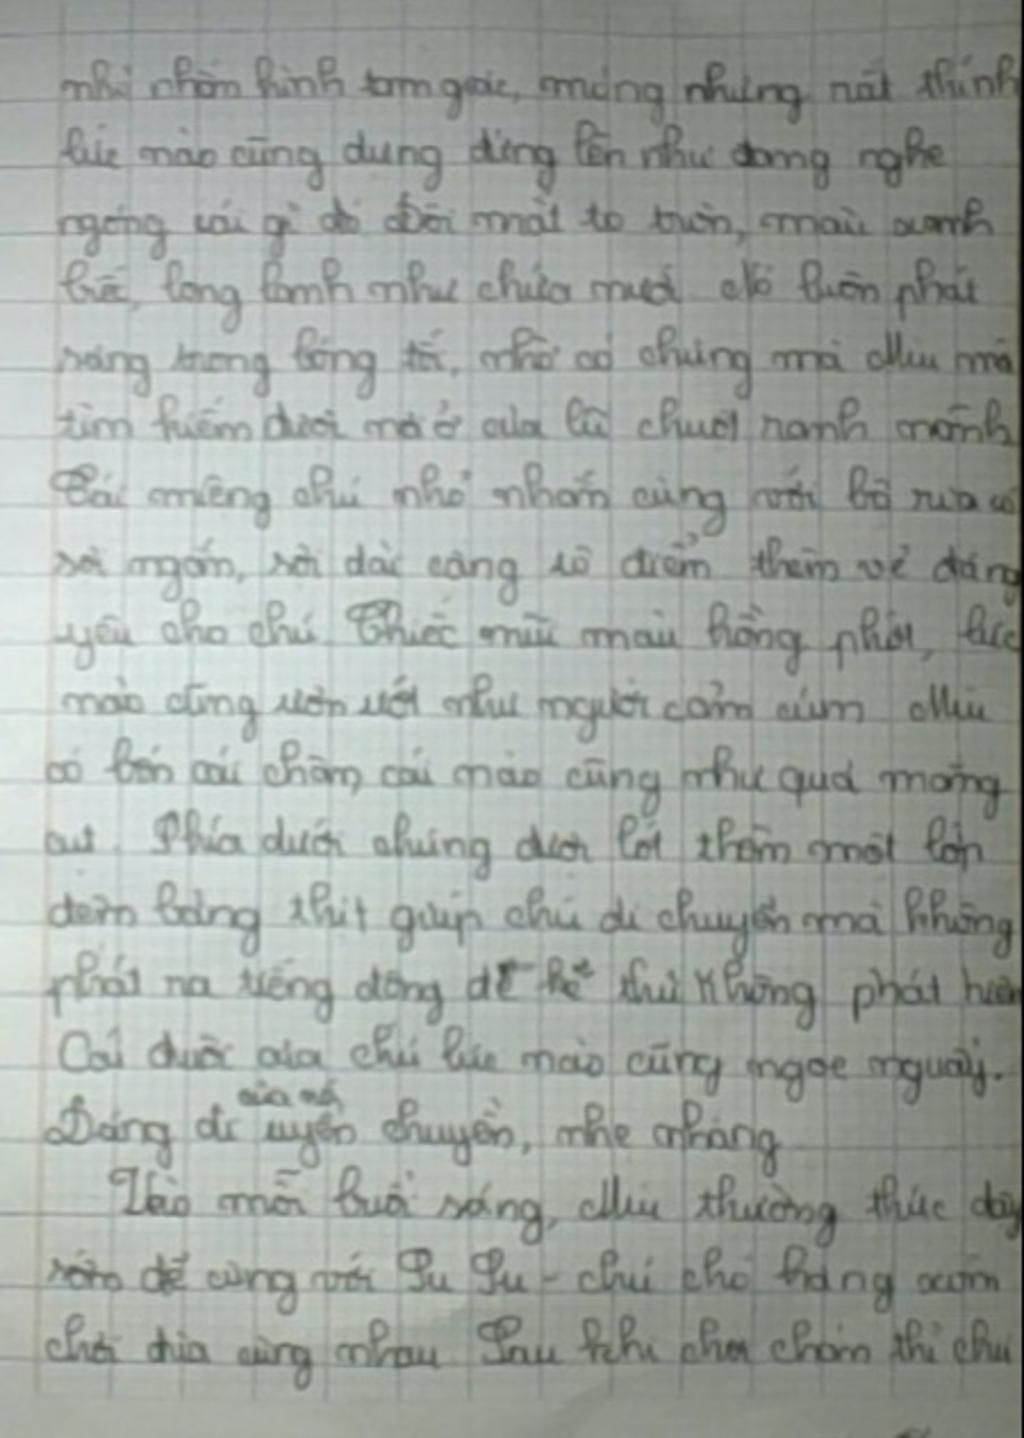 nhỉ nhắn hình tam giác, mỏng nhưng rất thính
lúc nào cũng dựng đứng lên như đang nghe
ngóng cái gì đó Đôi mắt to tròn, màu xanh
long lanh như chứa nước Nó luôn phát
sáng trong bóng tối, nhờ có chúng mà Miu mà
tìm kiếm được nơi ở của lũ chuột ranh mãnh
Cái miệng chú nhỏ nhắn cùng với bộ ria có
sợi ngắn, sợi dài càng tô điểm thêm vẻ đáng
yêu cho chú Chiếc mũi màu hồng phớt, lúc
nào cũng ươn ướt như người cảm cúm Miu
có bốn cái chân, cái nào cũng như quả măng
cụt. Phía dưới chúng được lót thêm một lớp
đệm bằng thịt giúp chú di chuyển mà không
phát ra tiếng động để kẻ thù không phát hiện
Cái đuôi của chú lúc nào cũng ngoe nguẩy.
Dáng đi của nó uyển chuyển, nhẹ nhàng
Vào mỗi buổi sáng, Miu thường thức dậy
sớm để cùng với Su Su - chú chó hàng xóm
chơi đùa cùng nhau Sau khi chơi chán thì chú